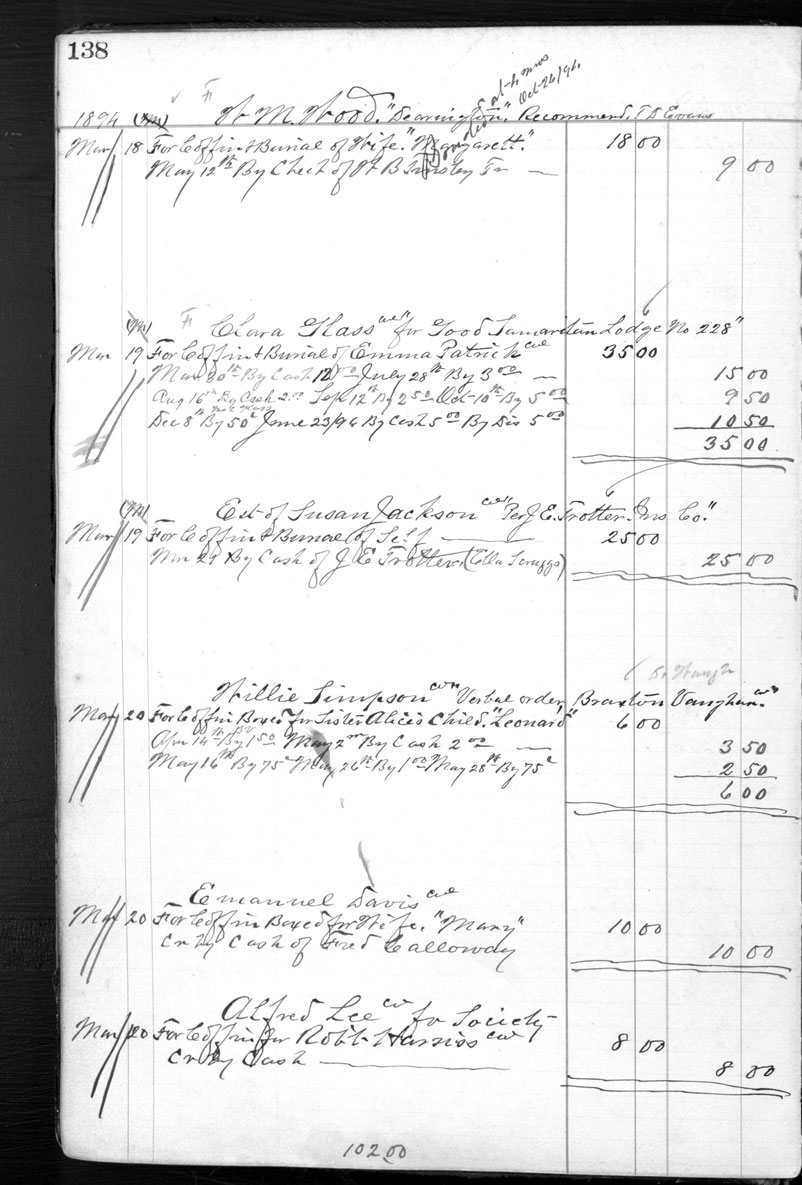 138
at 4 mos
Oct 26/94
1894 (Ju) W M. Wood. "Dearington." Recommend. T D Evans
Mar 18 For Coffin & Burial of Wife. "Margarett." 18 00
May 12th By Check of W B Tinsley Tr — 9 00
Clara Glass "col" for Good Samaritan Lodge No 228"
Mar 19 For Coffin & Burial of Emma Patrick col 35 00
Mar 20th By Cash 12.00 July 28th By 3 00 — 15 00
Aug 16th By Cash 2.00 Sep 12th By 2 50 Oct 10th By 5 00 9 50
Dec 8th By 50c June 23/96 By Cash 5 00 By Dis 5 00 10 50
35 00
Est of Susan Jackson col "Per J. E. Trotter. Ins Co."
Mar 19 For Coffin & Burial of Self — 25 00
Mar 29 By Cash of J E Trotter. (Ella Scruggs) 25 00
Willie Simpson col Verbal order, Braxton Vaughan. col
Mar 20 For Coffin Boxed for Sister Alice's Child. "Leonard" 6 00
Apr 14th By 1 50 May 2nd By Cash 2 00 — 3 50
May 16th By 75c May 26th By 1 00 May 28th By 75c 2 50
6 00
Emanuel Davis col
Mar 20 For Coffin Boxed for Wife. "Mary" 10 00
Cr by Cash of Fred Calloway 10 00
Alfred Lee col for Society
Mar 20 For Coffin for Robt. Harriss col 8 00
Cr By Cash — 8 00
102.00